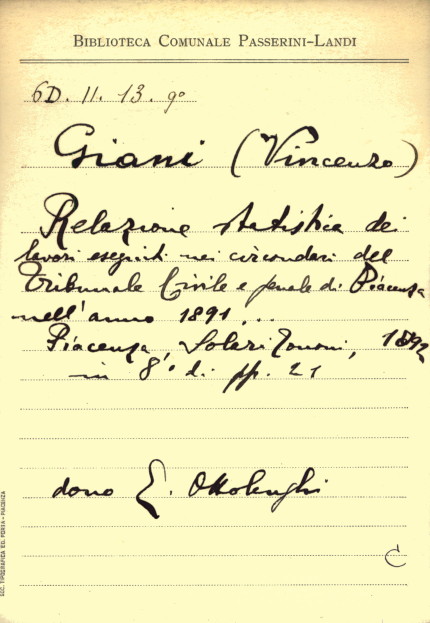 BIBLIOTECA COMUNALE PASSERINI-LANDI
6D. II. 13. 9º
Giani (Vincenzo)
Relazione statistica dei
lavori eseguiti nei circondari del
Tribunale Civile e penale di Piacenza
nell'anno 1891...
Piacenza, Solari Tononi, 1892
in 8º di pp. 21
dono E. Ottolenghi
C
SOC. TIPOGRAFICA ED. PORTA - PIACENZA